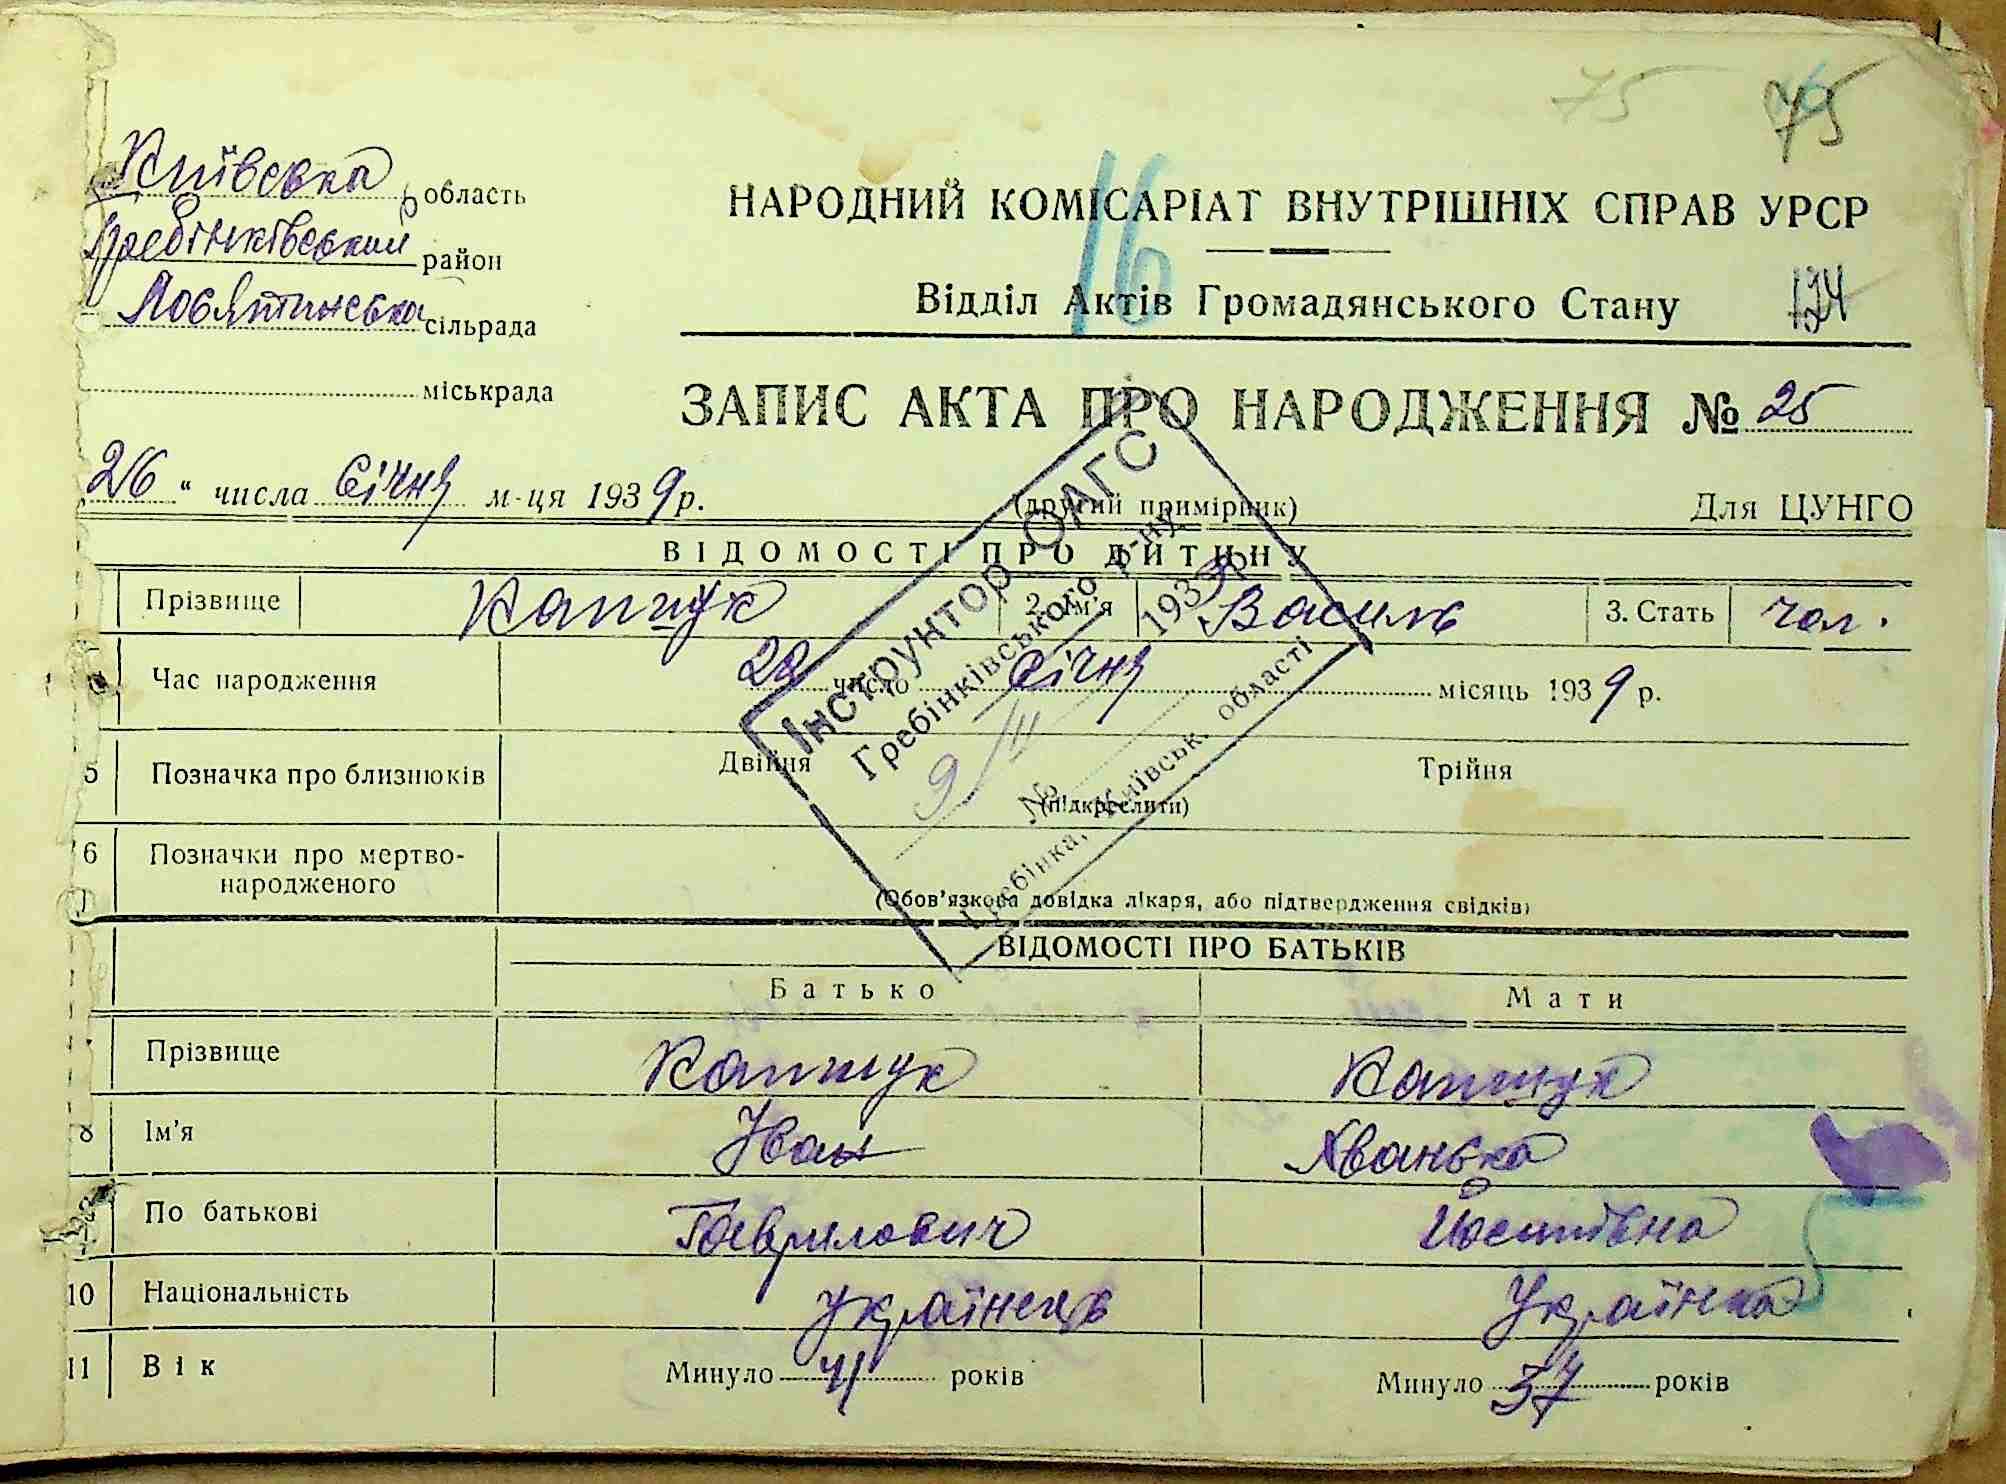 75 75
Київська область
Гребінківський район
Пов'ятинська сільрада
міськрада
НАРОДНИЙ КОМІСАРІАТ ВНУТРІШНІХ СПРАВ УРСР
16
Відділ Актів Громадянського Стану
ЗАПИС АКТА ПРО НАРОДЖЕННЯ № 25
26 " числа січня м-ця 1939 р.
(другий примірник)
Для ЦУНГО
ВІДОМОСТІ ПРО ДИТИНУ
Прізвище Капшук 2. Ім'я Василь 3. Стать чол.
Час народження 22 число січня місяць 1939 р.
5 Позначка про близнюків Двійня Трійня
(підкреслити)
6 Позначки про мертво-
народженого
(Обов'язкова довідка лікаря, або підтвердження свідків)
Інструктор ОАГС
Гребінківського р-ну
9/II 1939 р.
№
Гребінка, Київськ. області
ВІДОМОСТІ ПРО БАТЬКІВ
Батько Мати
Прізвище Капшук Капшук
8 Ім'я Іван Хванька
По батькові Гаврилович Йосипівна
10 Національність Українець Українка
11 Вік Минуло 41 років Минуло 37 років